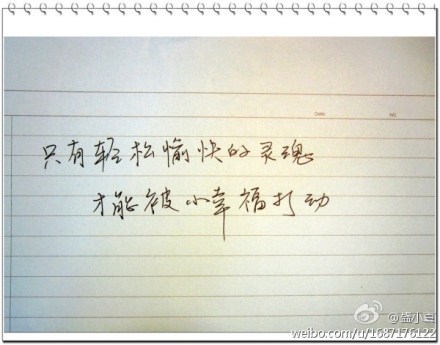 只有轻松愉快的灵魂
才能被小幸福打动
@蓝小白
weibo.com/u/1687176122